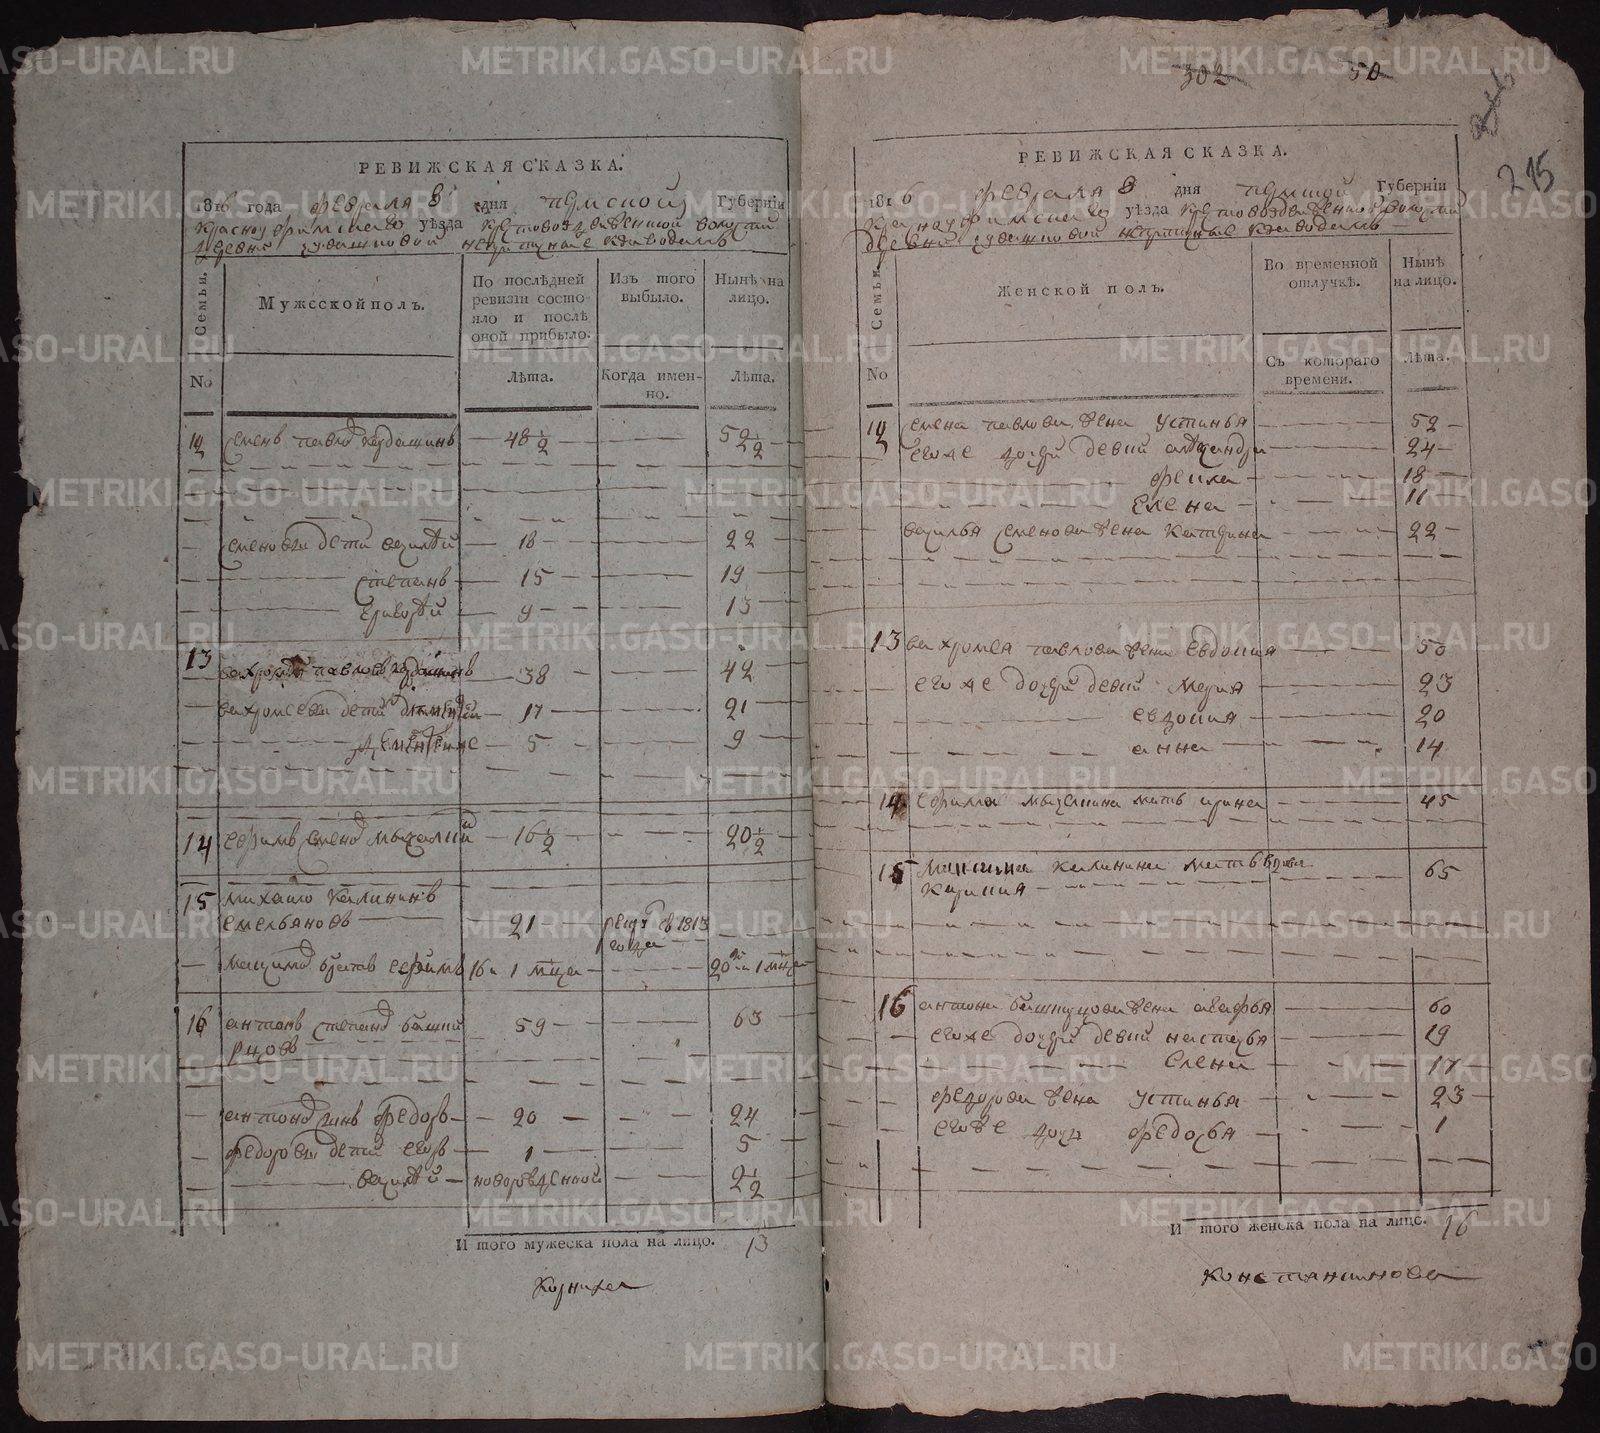 302 50
215
РЕВИЖСКАЯ СКАЗКА.
1816 года февраля 8 дня пермской Губерніи
красноуфимскаго уѣзда крестовоздвиженской волости
деревни
Семьи. No
Мужсской полъ.
По послѣдней ревизіи состояло и послѣ оной прибыло.
Лѣта.
Изъ того выбыло.
Когда именно.
Нынѣ на лицо.
Лѣта.
семенъ павловъ 48½ 52½
семеновы дети василей 18 22
степанъ 15 19
григорей 9 13
13 вахромей павловъ 38 42
вахромеевы дети 17 21
5 9
14 ефимъ семеновъ 16½ 20½
15 михаило калининъ
емельяновъ 21 1813
года
братъ ефимъ 16 и 1 мца 20 и 1 мца
16 антонъ степановъ 59 63
антоновъ сынъ федоръ 20 24
федоровы дети егоръ 1 5
василей новорожденной 2½
И того мужеска пола на лицо. 13
РЕВИЖСКАЯ СКАЗКА.
1816 февраля 8 дня пермской Губерніи
красноуфимскаго уѣзда крестовоздвиженской волости
деревни
Семьи. No
Женской полъ.
Во временной отлучкѣ.
Съ котораго времени.
Нынѣ на лицо.
Лѣта.
семена павлова жена устинья 52
егоже дочери девки александра 24
18
елена 11
василья семенова жена катерина 22
13 вахромея павлова жена евдокия 50
егоже дочери девки марья 23
евдокия 20
анна 14
14 ефима мать ирина 45
15 калинина мать вдова 65
16 антона жена агафья 60
егоже дочери девки настасья 19
елена 17
федорова жена устинья 23
егоже дочь федосья 1
И того женска пола на лицо. 16
константинова